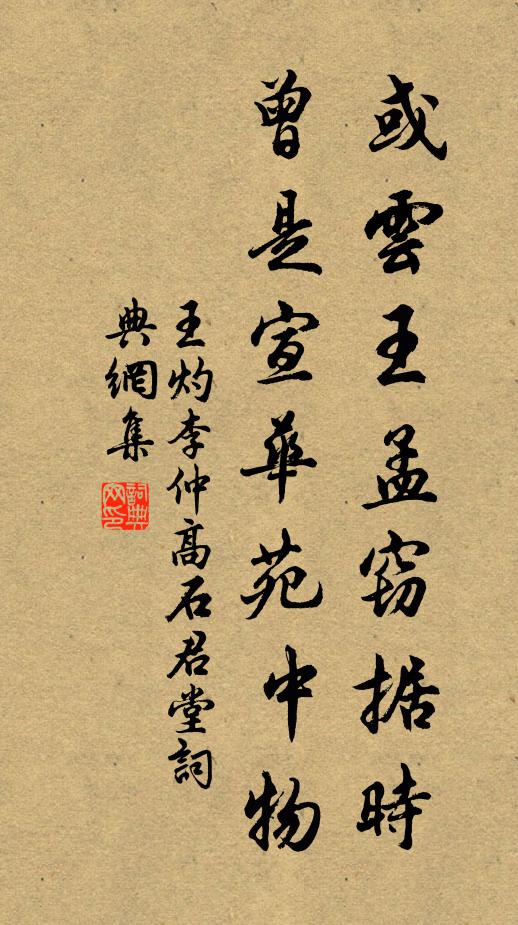 或雲王孟窈据時
曾是宣華苑中物
王灼李仲高石君堂詞
典網集
詞典
网印